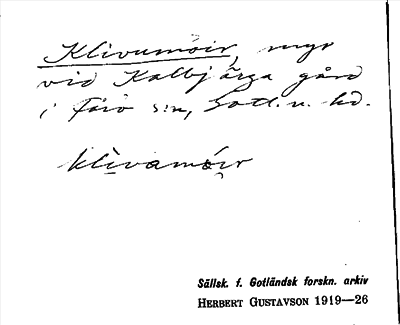 Klivumöir, myr
vid Kalbjärga gård
i Fårö s:n, Gotl. n. hd.
klivamóir
Sällsk. f. Gotländsk forskn. arkiv
HERBERT GUSTAVSON 1919—26